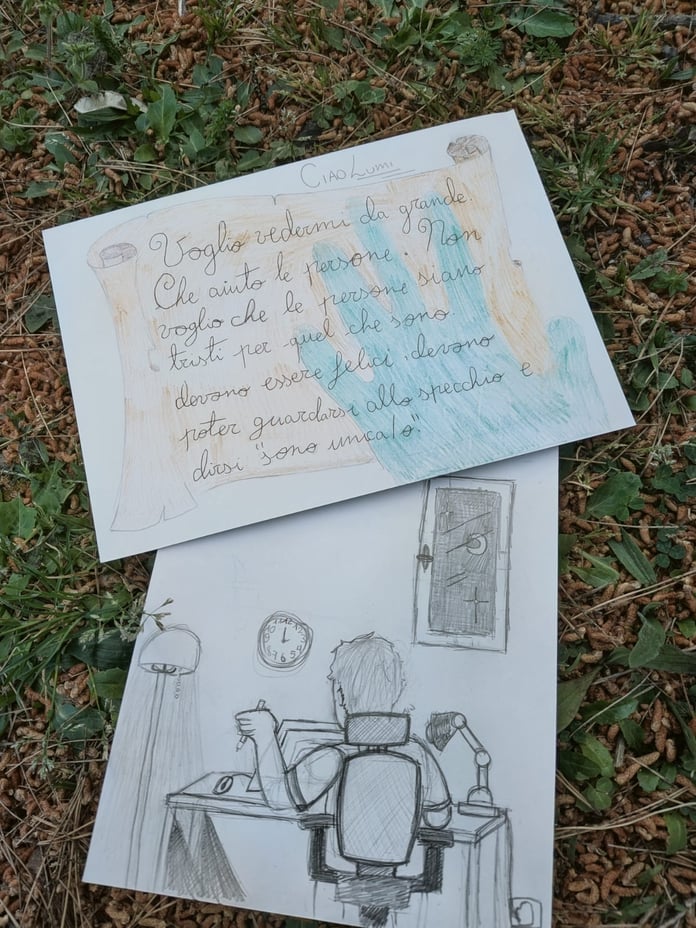 CIAO LUMI
Voglio vedermi da grande.
Che aiuto le persone. Non
voglio che le persone siano
tristi per quel che sono.
devono essere felici, devono
poter guardarsi allo specchio e
dirsi "sono unica/o".